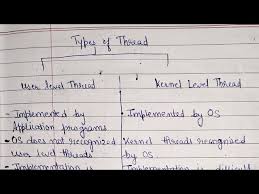 Types of Thread
User Level Thread
Kernel Level Thread
- Implemented by
Application programs
- OS does not recognized
user level threads
- Implementation is
- Implemented by OS
Kernel threads recognized
by OS.
Implementation is difficult